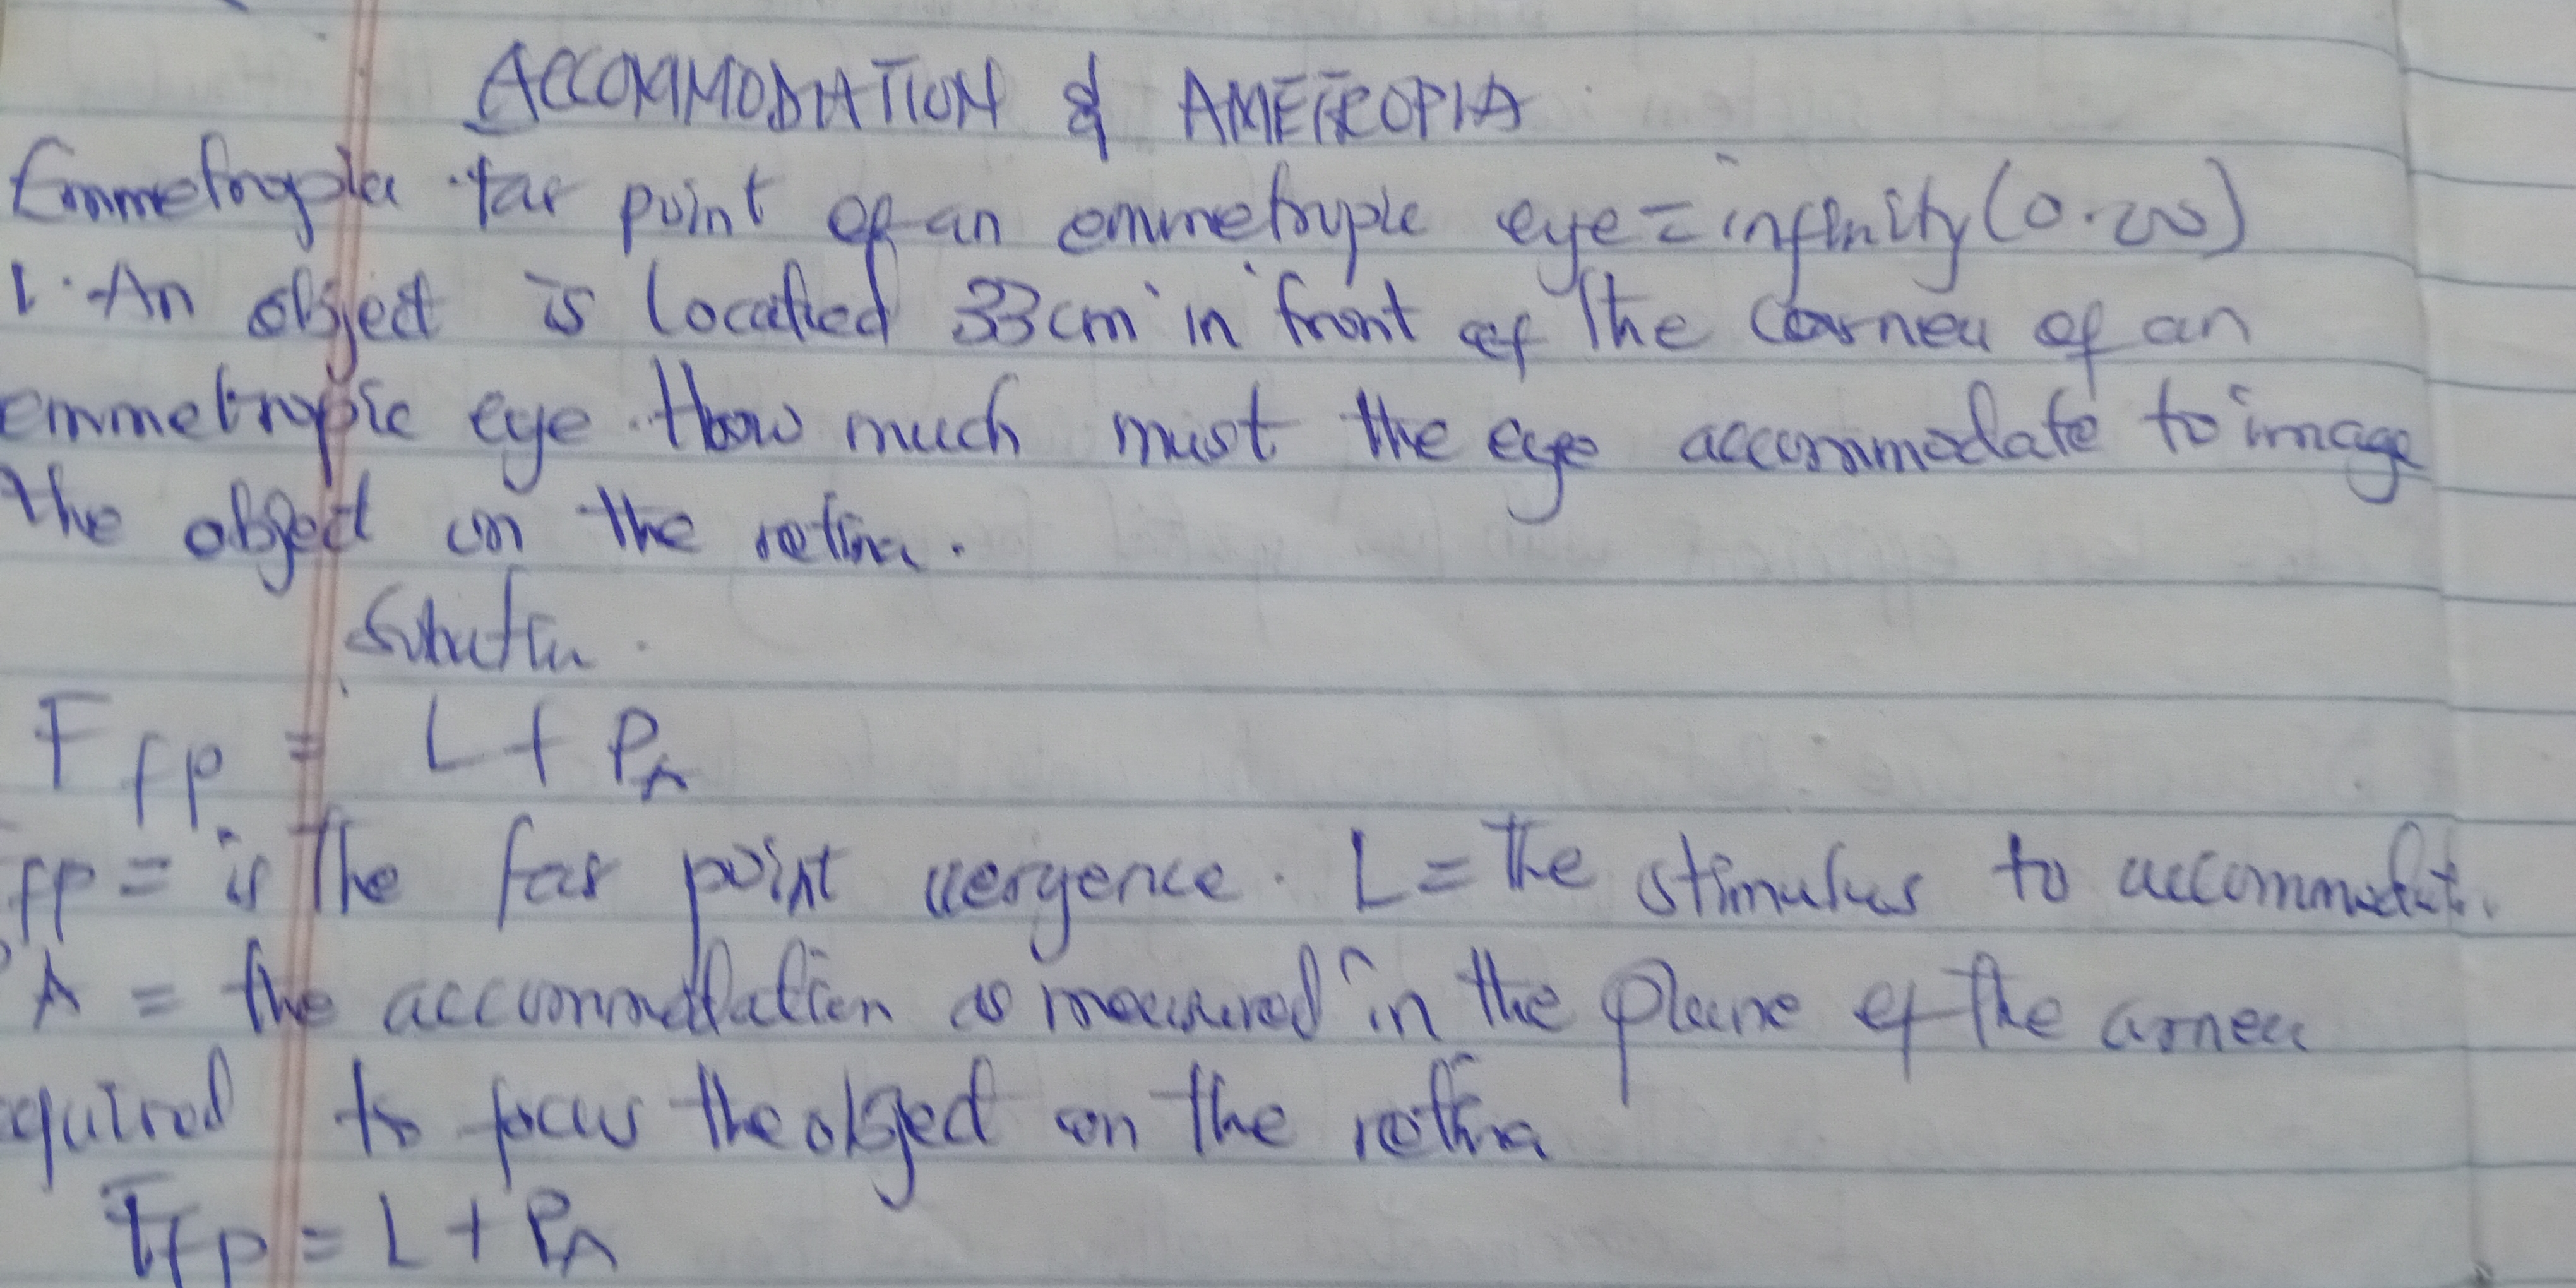 ACCOMMODATION & AMETROPIA
Emmetropia far point of an emmetropic eye = infinity (0.00)
1. An object is located 33cm in front of the cornea of an
emmetropic eye. How much must the eye accommodate to image
the object on the retina.
Solution.
F fp = L + PA
fp = is the far point vergence. L = the stimulus to accommodat.
A = the accommodation as measured in the plane of the cornea
equired to focus the object on the retina
Ffp = L + PA